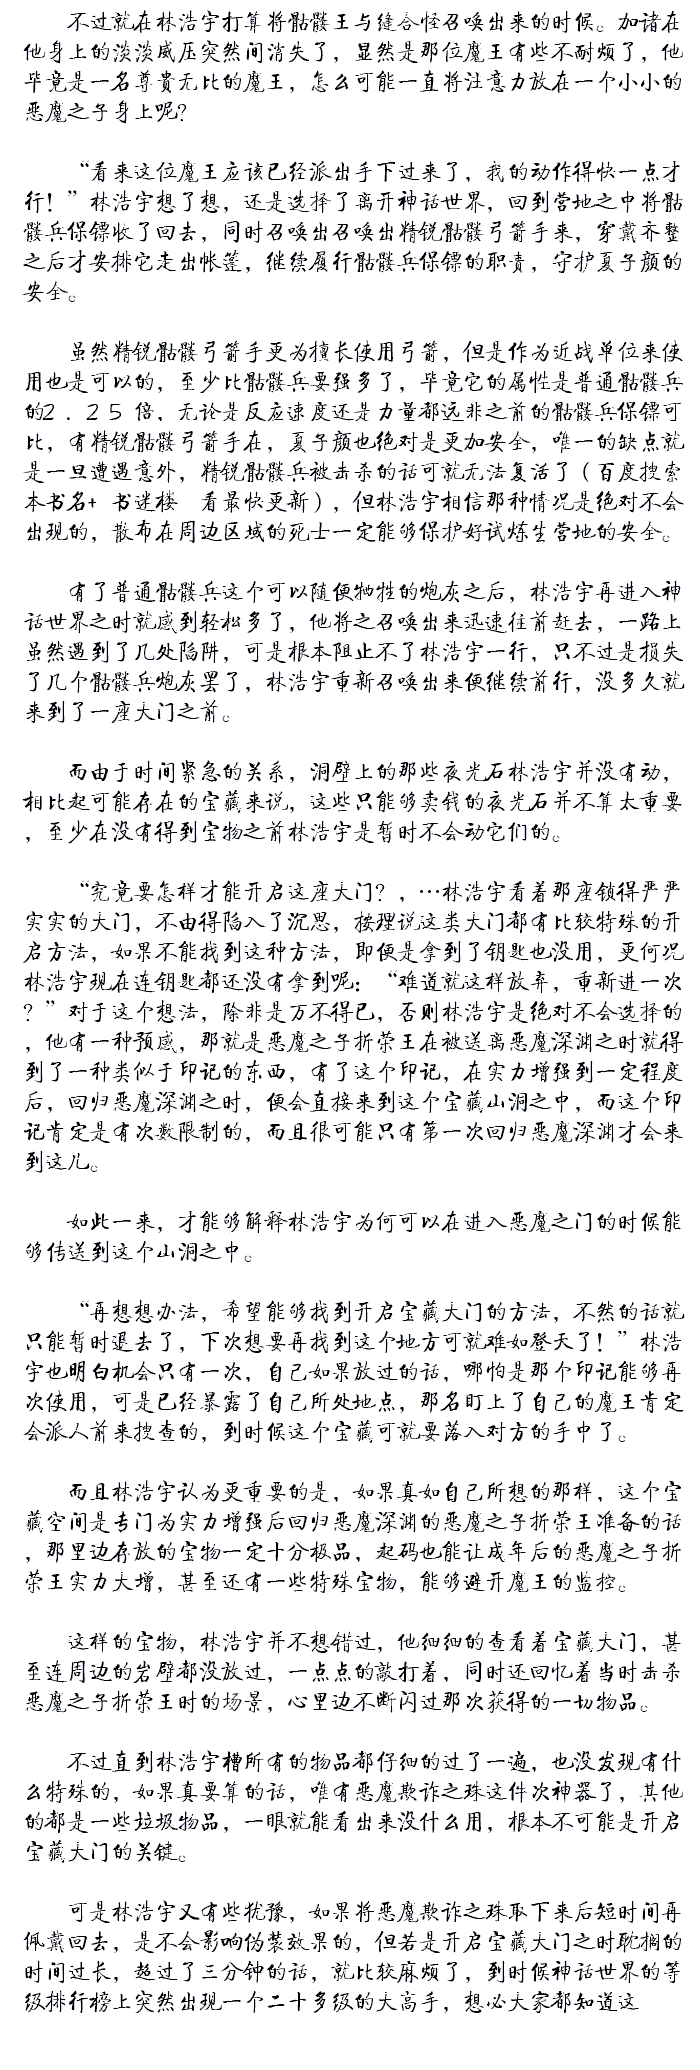 不过就在林浩宇打算将骷髅王与缝合怪召唤出来的时候。加诸在
他身上的淡淡威压突然间消失了，显然是那位魔王有些不耐烦了，他
毕竟是一名尊貴无比的魔王，怎么可能一直将注意力放在一个小小的
恶魔之子身上呢？
“看来这位魔王应该已经派出手下过来了，我的动作得快一点才
行！”林浩宇想了想，还是选择了离开神话世界，回到营地之中将骷
髅兵保镖收了回去，同时召唤出召唤出精锐骷髅弓箭手来，穿戴齐整
之后才安排它走出帐蓬，继续履行骷髅兵保镖的职责，守护夏子颜的
安全。
虽然精锐骷髅弓箭手更为擅长使用弓箭，但是作为近战单位来使
用也是可以的，至少比骷髅兵要强多了，毕竟它的属性是普通骷髅兵
的2．25倍，无论是反应速度还是力量都远非之前的骷髅兵保镖可
比，有精锐骷髅弓箭手在，夏子颜也绝对是更加安全，唯一的缺点就
是一旦遭遇意外，精锐骷髅兵被击杀的话可就无法复活了（百度搜索
本书名+ 书迷楼 看最快更新），但林浩宇相信那种情况是绝对不会
出现的，散布在周边区域的死士一定能够保护好试炼生营地的安全。
有了普通骷髅兵这个可以随便牺牲的炮灰之后，林浩宇再进入神
话世界之时就感到轻松多了，他将之召唤出来迅速往前赶去，一路上
虽然遇到了几处陷阱，可是根本阻止不了林浩宇一行，只不过是损失
了几个骷髅兵炮灰罢了，林浩宇重新召唤出来便继续前行，没多久就
来到了一座大门之前。
而由于时间紧急的关系，洞壁上的那些夜光石林浩宇并没有动，
相比起可能存在的宝藏来说，这些只能够卖钱的夜光石并不算太重要
，至少在没有得到宝物之前林浩宇是暂时不会动它们的。
“究竟要怎样才能开启这座大门？，…林浩宇看着那座锁得严严
实实的大门，不由得陷入了沉思，按理说这类大门都有比较特殊的开
启方法，如果不能找到这种方法，即便是拿到了钥匙也没用，更何况
林浩宇现在连钥匙都还没有拿到呢：“难道就这样放弃，重新进一次
？”对于这个想法，除非是万不得已，否则林浩宇是绝对不会选择的
，他有一种预感，那就是恶魔之子折荣王在被送离恶魔深渊之时就得
到了一种类似于印记的东西，有了这个印记，在实力增强到一定程度
后，回归恶魔深渊之时，便会直接来到这个宝藏山洞之中，而这个印
记肯定是有次数限制的，而且很可能只有第一次回归恶魔深渊才会来
到这儿。
如此一来，才能够解释林浩宇为何可以在进入恶魔之门的时候能
够传送到这个山洞之中。
“再想想办法，希望能够找到开启宝藏大门的方法，不然的话就
只能暂时退去了，下次想要再找到这个地方可就难如登天了！”林浩
宇也明白机会只有一次，自己如果放过的话，哪怕是那个印记能够再
次使用，可是已经暴露了自己所处地点，那名盯上了自己的魔王肯定
会派人前来搜查的，到时候这个宝藏可就要落入对方的手中了。
而且林浩宇认为更重要的是，如果真如自己所想的那样，这个宝
藏空间是专门为实力增强后回归恶魔深渊的恶魔之子折荣王准备的话
，那里边存放的宝物一定十分极品，起码也能让成年后的恶魔之子折
荣王实力大增，甚至还有一些特殊宝物，能够避开魔王的监控。
这样的宝物，林浩宇并不想错过，他细细的查看着宝藏大门，甚
至连周边的岩壁都没放过，一点点的敲打着，同时还回忆着当时击杀
恶魔之子折荣王时的场景，心里边不断闪过那次获得的一切物品。
不过直到林浩宇槽所有的物品都仔细的过了一遍，也没发现有什
么特殊的，如果真要算的话，唯有恶魔欺诈之珠这件次神器了，其他
的都是一些垃圾物品，一眼就能看出来没什么用，根本不可能是开启
宝藏大门的关键。
可是林浩宇又有些犹豫，如果将恶魔欺诈之珠取下来后短时间再
佩戴回去，是不会影响伪装效果的，但若是开启宝藏大门之时耽搁的
时间过长，超过了三分钟的话，就比较麻烦了，到时候神话世界的等
级排行榜上突然出现一个二十多级的大高手，想必大家都知道这